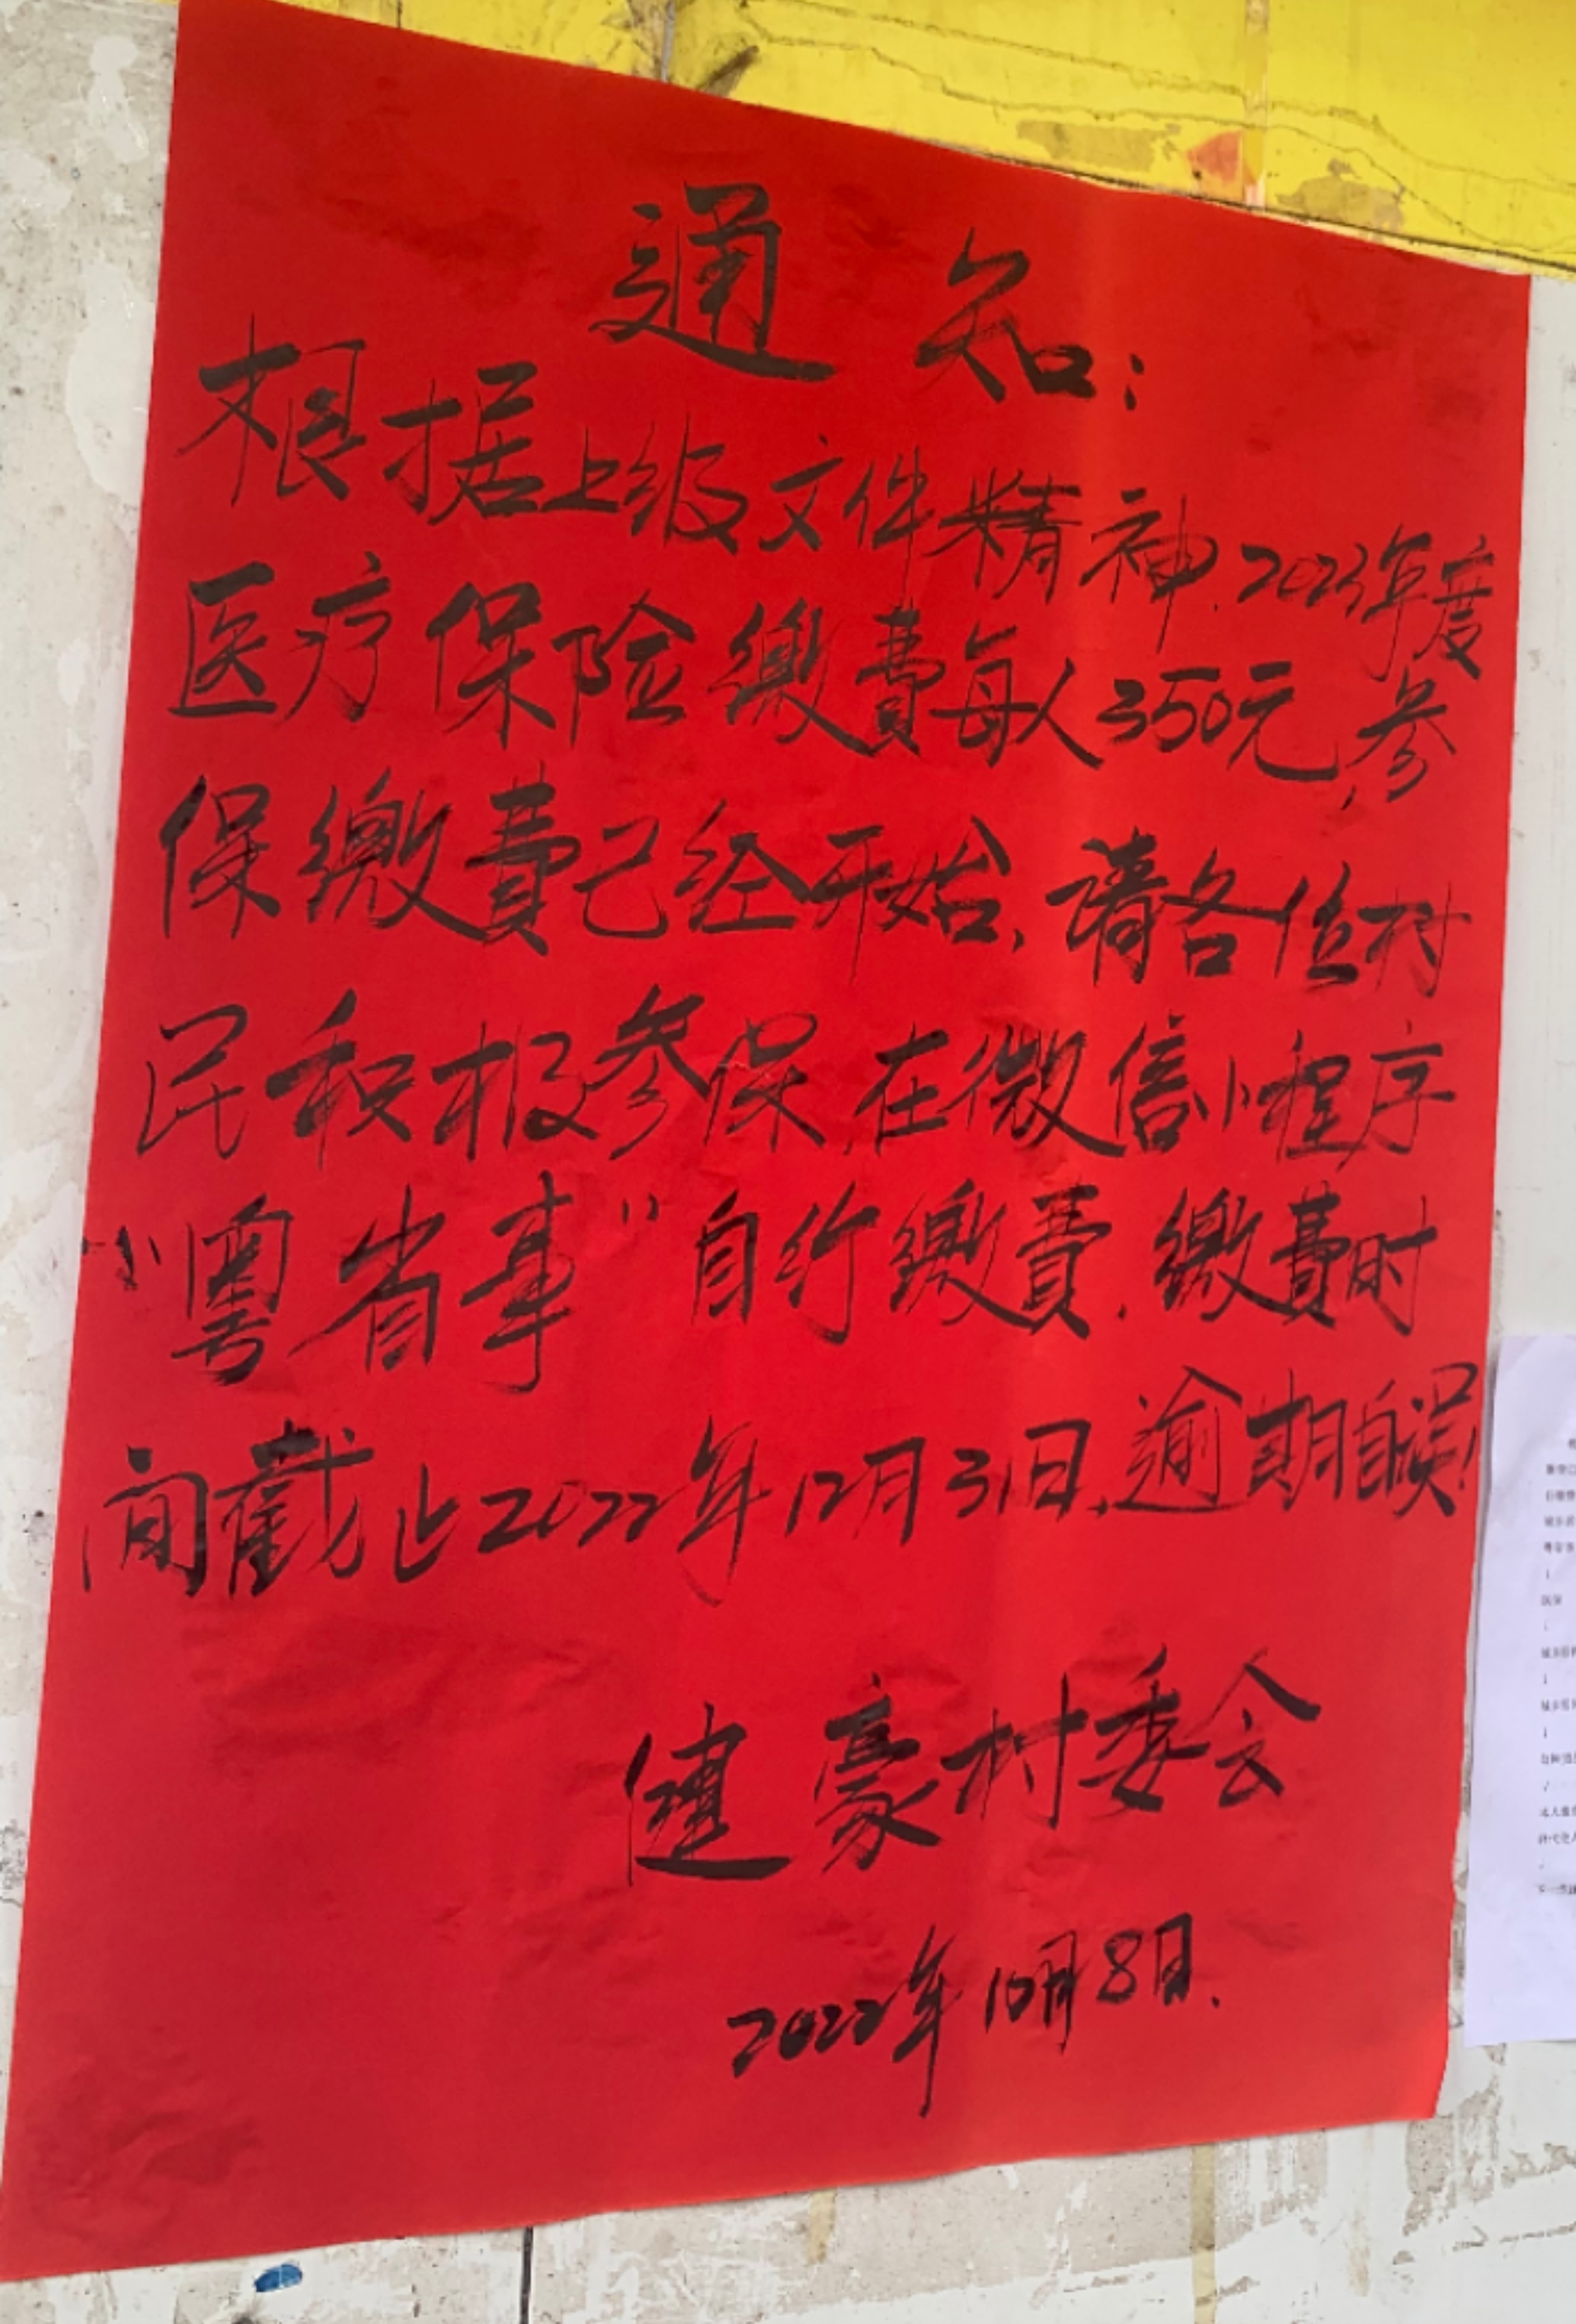 通知:
根据上级文件精神,2023年度
医疗保险缴費每人350元,参
保缴費已经开始,请各位村
民积极参保,在微信小程序
“粤省事”自行缴費,缴費时
间截止2022年12月31日,逾期自误!
健豪村委会
2022年10月8日.